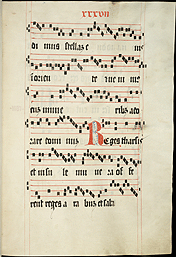 xxxvii
dimus stellas e ius
in orien te et ve ni mus
cum mune ribus ado
rare dominus Reges tharsis
et insu le mu ne ra of fe
rent reges a ra bus et saba